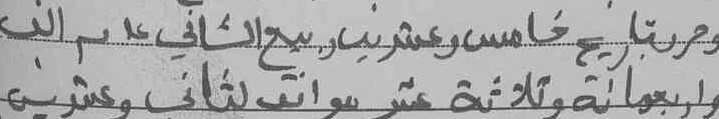 وحرر بتاريخ خامس وعشرين ربيع الثاني عام الف
واربعمائة وثلاثة عشر موافق لثاني وعشرين